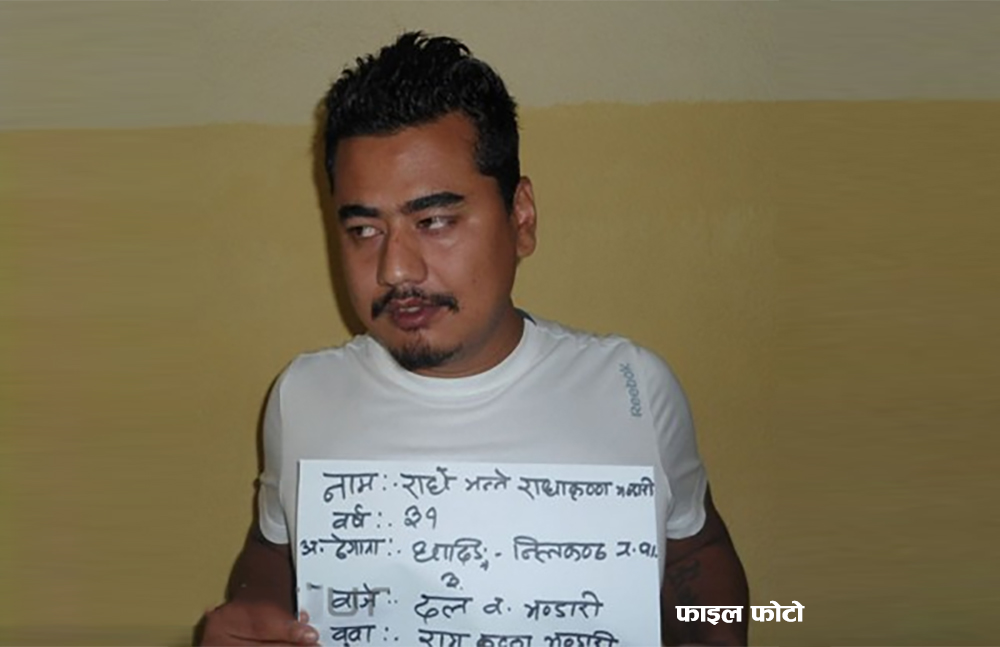 Reebok
नाम :- राधे भन्ने राधाकृष्ण भण्डारी
वर्ष :. ३१
अ. ठेगाना :. धादिङ, - निलकण्ठ न.पा.
बाजे :. दल ब. भण्डारी
बुवा :. राम कृष्ण भण्डारी
फाइल फोटो